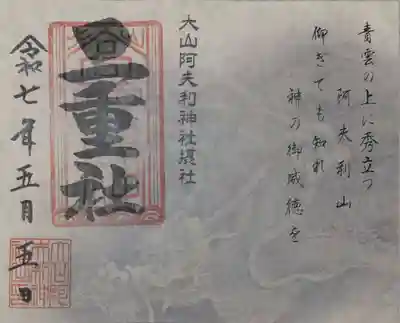 青雲の上に秀立つ
阿夫利山
仰きても知れ
神乃御威徳を
大山阿夫利神社摂社
二重社
令和七年五月五日